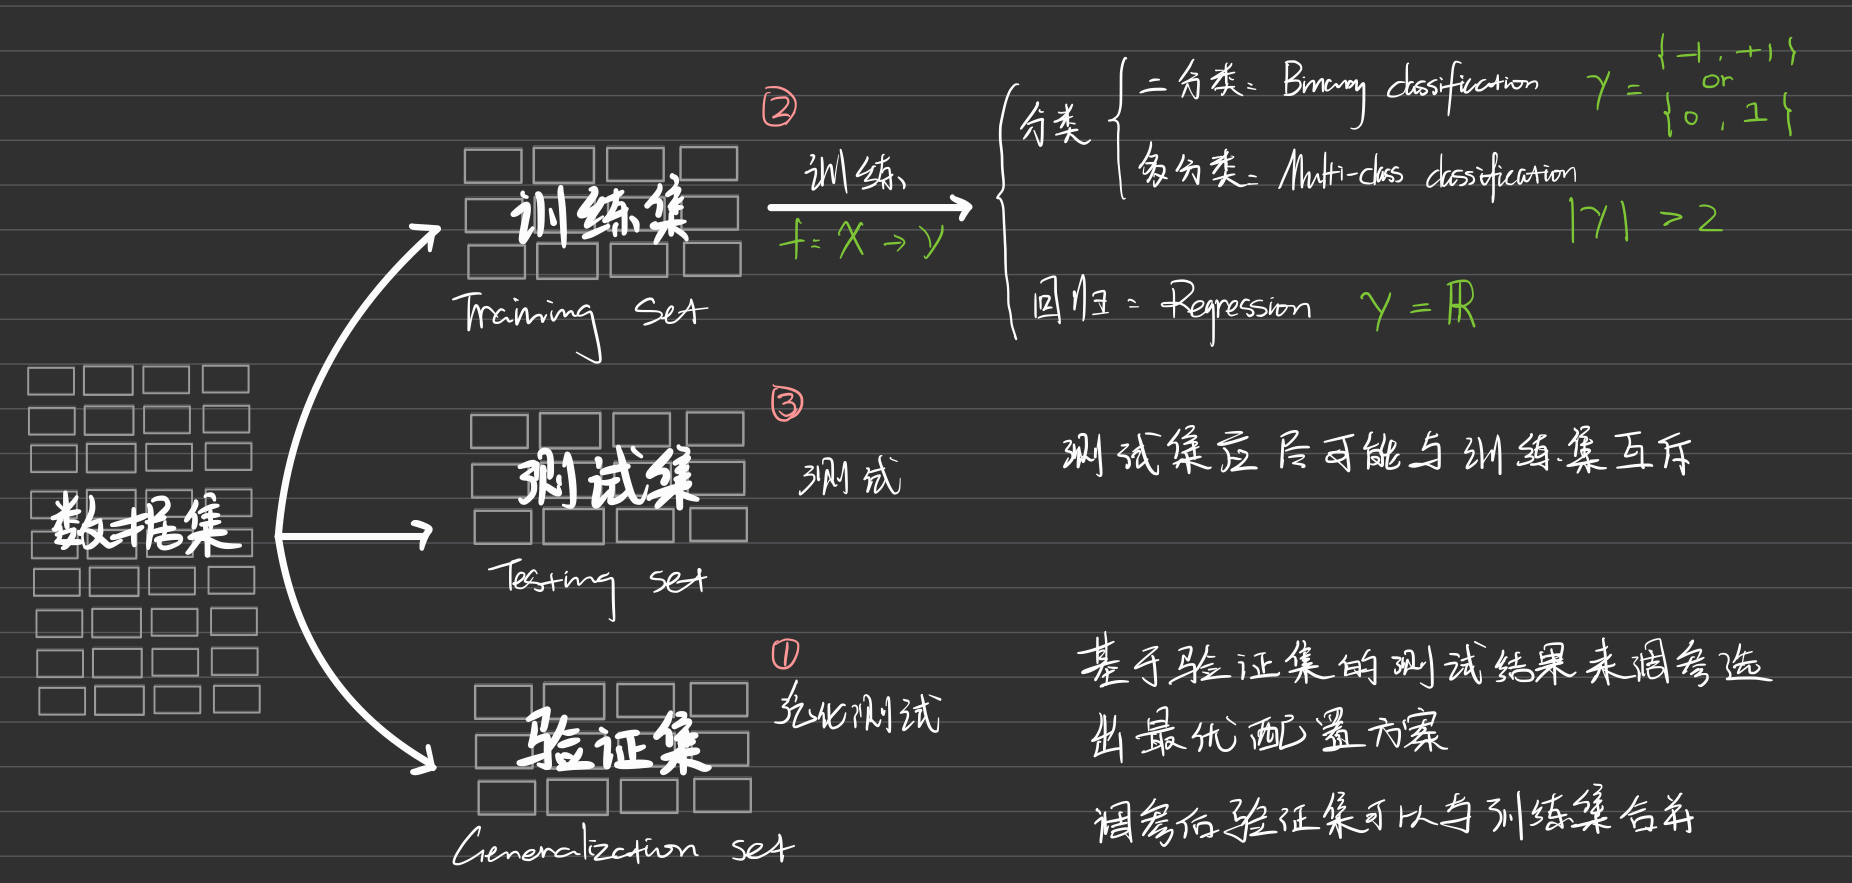 数据集
②
训练集
Training set
训练
f: X → y
分类
二分类: Binary classification
Y = {-1, +1} or {0, 1}
多分类: Multi-class classification
|Y| > 2
回归: Regression
Y = ℝ
③
测试集
Testing set
测试
测试集应尽可能与训练集互斥
①
验证集
Generalization set
泛化测试
基于验证集的测试结果来调参选
出最优配置方案
调参后验证集可以与训练集合并